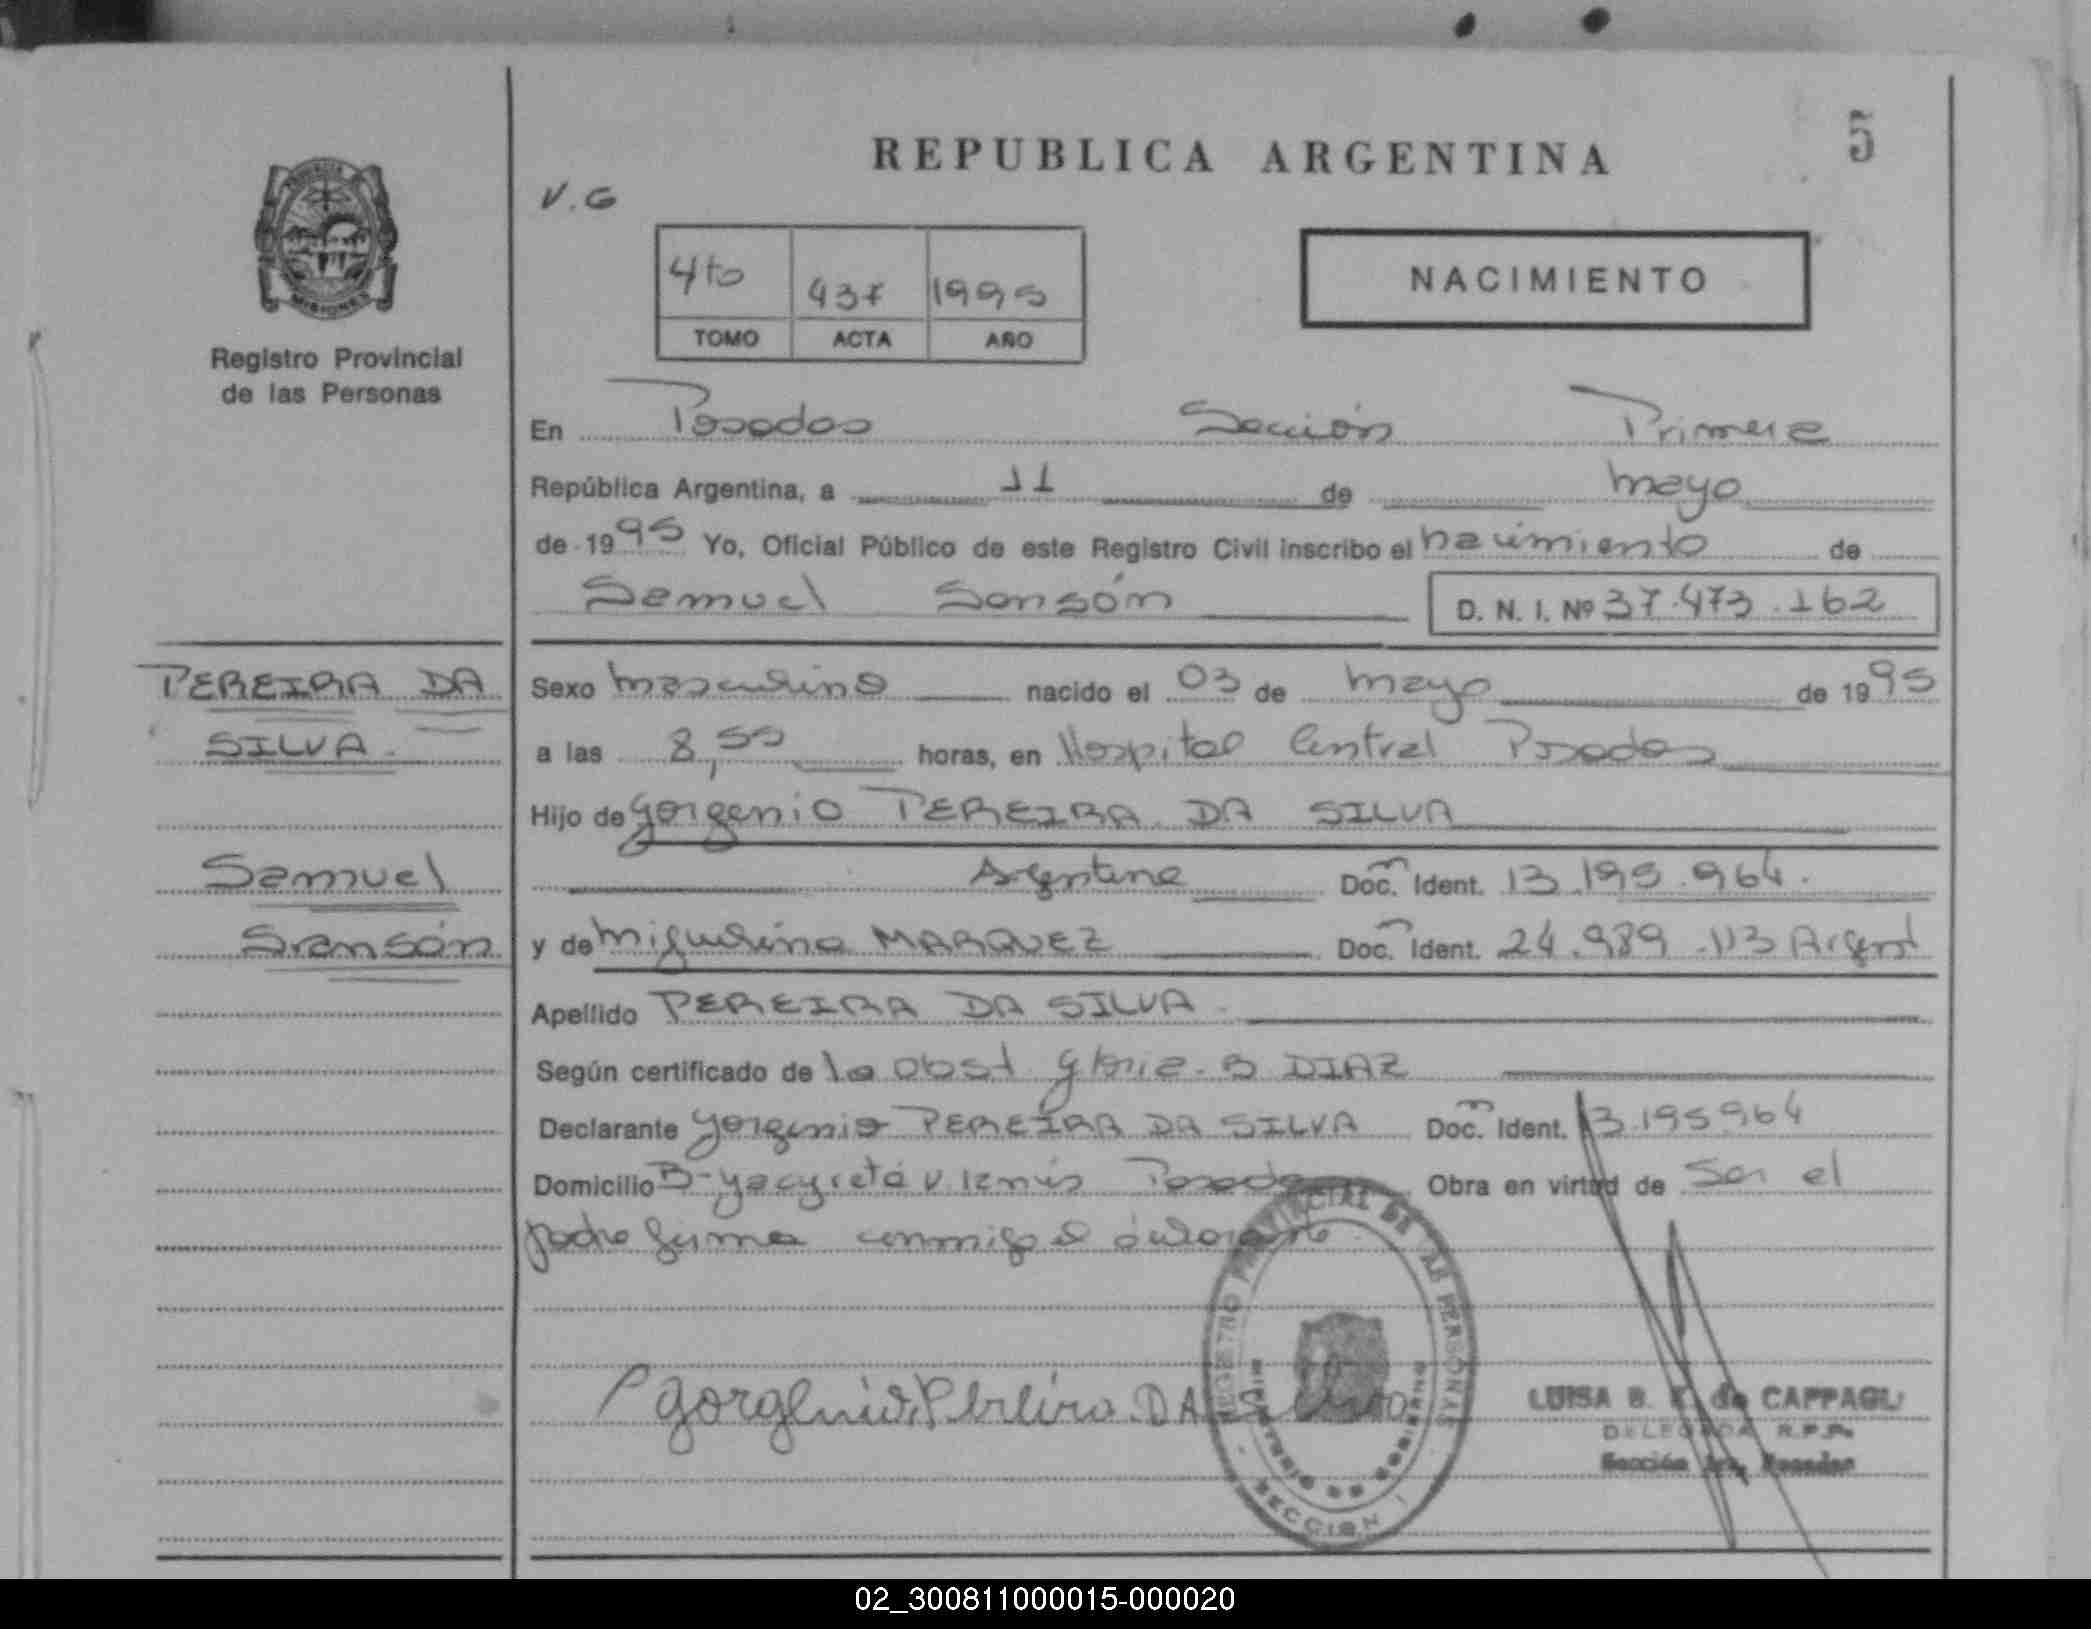 5
REPUBLICA ARGENTINA
V.G
NACIMIENTO
4to 437 1995
TOMO ACTA AÑO
MISIONES
Registro Provincial
de las Personas
En Posadas Sección Primera
República Argentina, a 11 de mayo
de 1995 Yo, Oficial Público de este Registro Civil inscribo el nacimiento de
Samuel Sansón D. N. I. Nº 37.473.162
PEREIRA DA
SILVA.
Samuel
Sansón
Sexo masculino nacido el 03 de mayo de 1995
a las 8,55 horas, en Hospital Central Posadas
Hijo de Gorgenio PEREIRA DA SILVA
Argentina Doc. Ident. 13.195.964.
y de Miguelina MARQUEZ Doc. Ident. 24.989.113 Argent
Apellido PEREIRA DA SILVA
Según certificado de la obst Gloria B DIAZ
Declarante Gorgenio PEREIRA DA SILVA Doc. Ident. 13.195964
Domicilio B-Yacyretá Posadas Obra en virtud de Ser el
padre firma conmigo el declarante
Gorgenio Pereira DA Silva
REGISTRO PROVINCIAL DE LAS PERSONAS
MINISTERIO DE GOBIERNO
SECCION
LUISA B. de CAPPAGLI
DELEGADA R.P.P.
Sección 1ra. Posadas
02_300811000015-000020